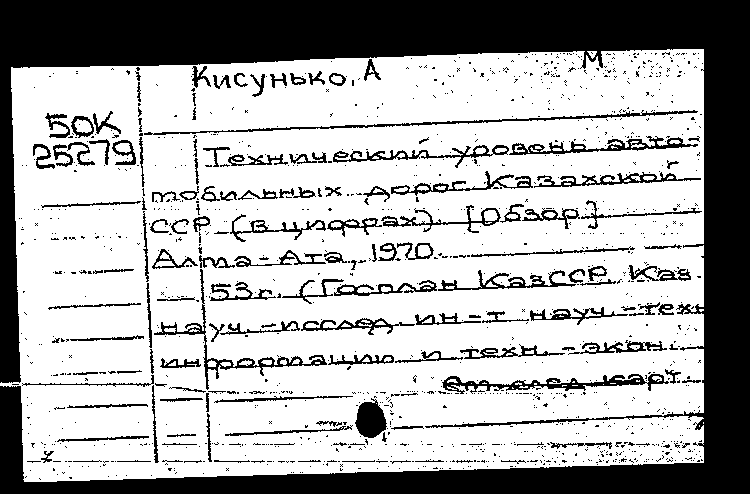 Кисунько, А
М
50К
25279
Технический уровень авто-
мобильных дорог Казахской
ССР (в цифрах). [Обзор]
Алма-Ата, 1970.
53с. (Госплан КазССР. Каз.
науч.-исслед. ин-т науч.-техн
информации и техн.-экон.
см. след карт.